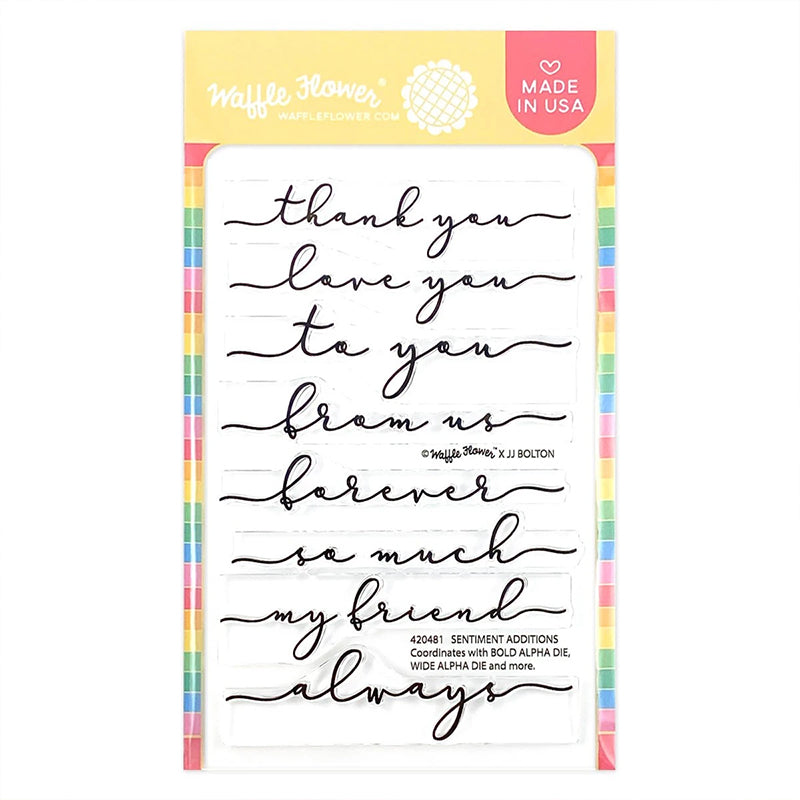 Waffle Flower®
WAFFLEFLOWER.COM
MADE
IN USA
thank you
love you
to you
from us
©Waffle Flower™ X JJ BOLTON
forever
so much
my friend
420481 SENTIMENT ADDITIONS
Coordinates with BOLD ALPHA DIE,
WIDE ALPHA DIE and more.
always